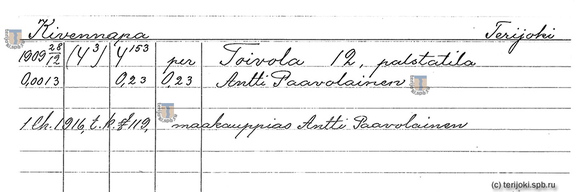 Kivennapa Terijoki
1909 28/12 (4³) 4¹⁵³ per Toivola 12, palstatila
0,0013 0,23 0,23 Antti Paavolainen
1916, t.k. § 119, maakauppias Antti Paavolainen
(c) terijoki.spb.ru